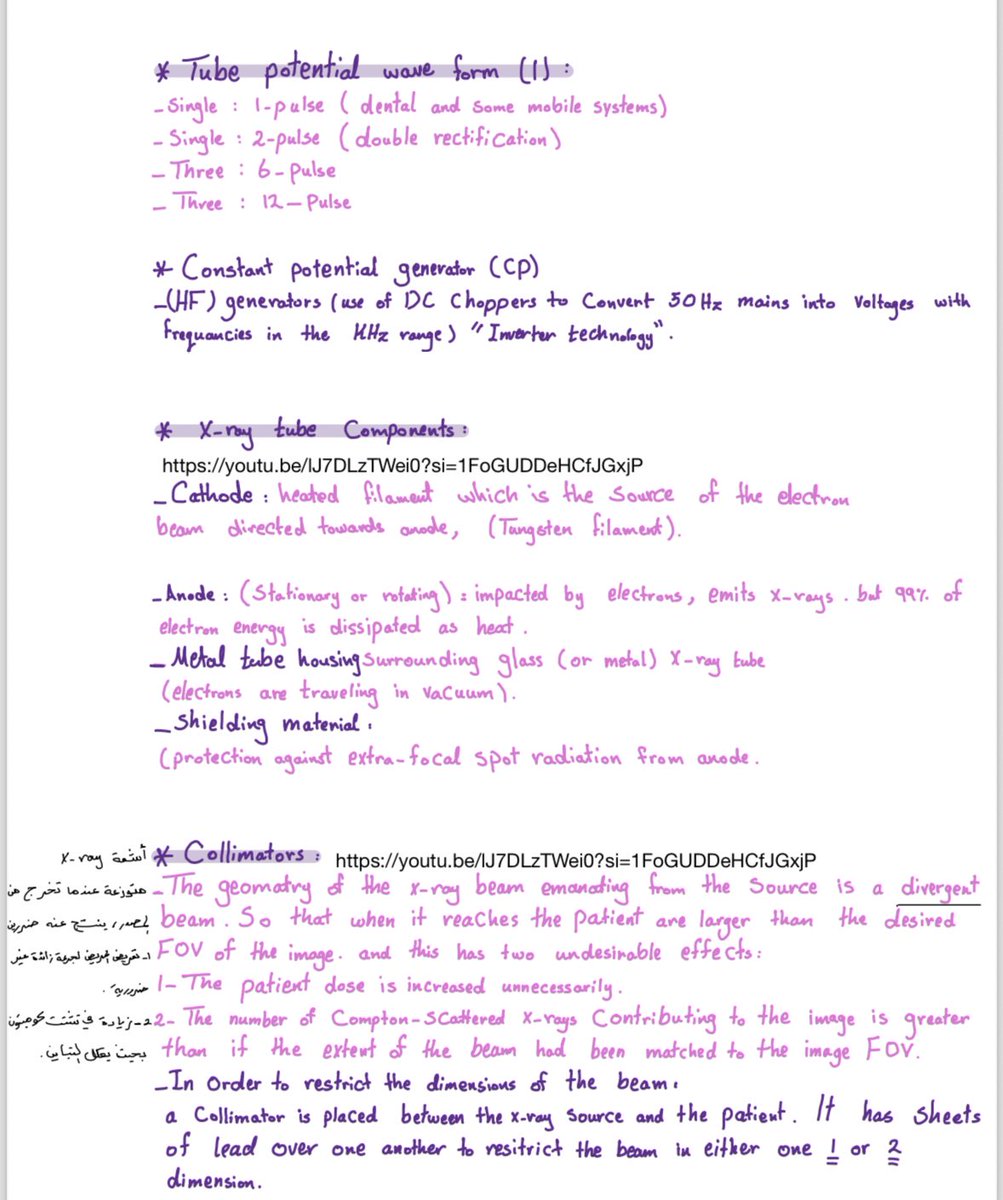 * Tube potential wave form (1) :
_ Single : 1-pulse ( dental and some mobile systems)
- Single : 2-pulse ( double rectification )
_ Three : 6-Pulse
_ Three : 12-Pulse
* Constant potential generator (CP)
_(HF) generators ( use of DC Choppers to Convert 50 Hz mains into Voltages with
frequancies in the KHz range ) "Inverter technology".
* X-ray tube Components :
https://youtu.be/IJ7DLzTWei0?si=1FoGUDDeHCfJGxjP
_ Cathode : heated filament which is the Source of the electron
beam directed towards anode, (Tungsten filament).
_ Anode : (Stationary or rotating) : impacted by electrons, emits X-rays . but 99% of
electron energy is dissipated as heat .
_ Metal tube housing Surrounding glass (or metal) X-ray tube
(electrons are traveling in Vacuum).
_ Shielding material :
(protection against extra-focal spot radiation from anode .
* Collimators : https://youtu.be/IJ7DLzTWei0?si=1FoGUDDeHCfJGxjP
أشعة X-ray
_ The geomatry of the x-ray beam emanating from the Source is a divergent
متوزعة عندما تخرج من
beam . So that when it reaches the patient are larger than the desired
ينتج عنه
FOV of the image . and this has two undesirable effects :
1- تعريض المريض لجرعة زائدة غير
1- The patient dose is increased unnecessarily .
ضرورية .
2- The number of Compton-Scattered X-rays Contributing to the image is greater
2- زيادة في تشتت كومبتون
than if the extent of the beam had been matched to the image FOV.
بحيث يقلل التباين .
_ In order to restrict the dimensions of the beam :
a Collimator is placed between the x-ray Source and the patient . It has Sheets
of lead over one another to resitrict the beam in either one 1 or 2
dimension .